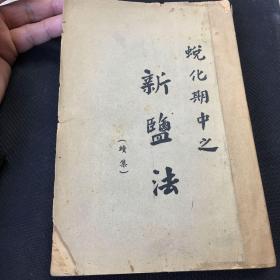 蛻化期中之
新鹽法
(續集)